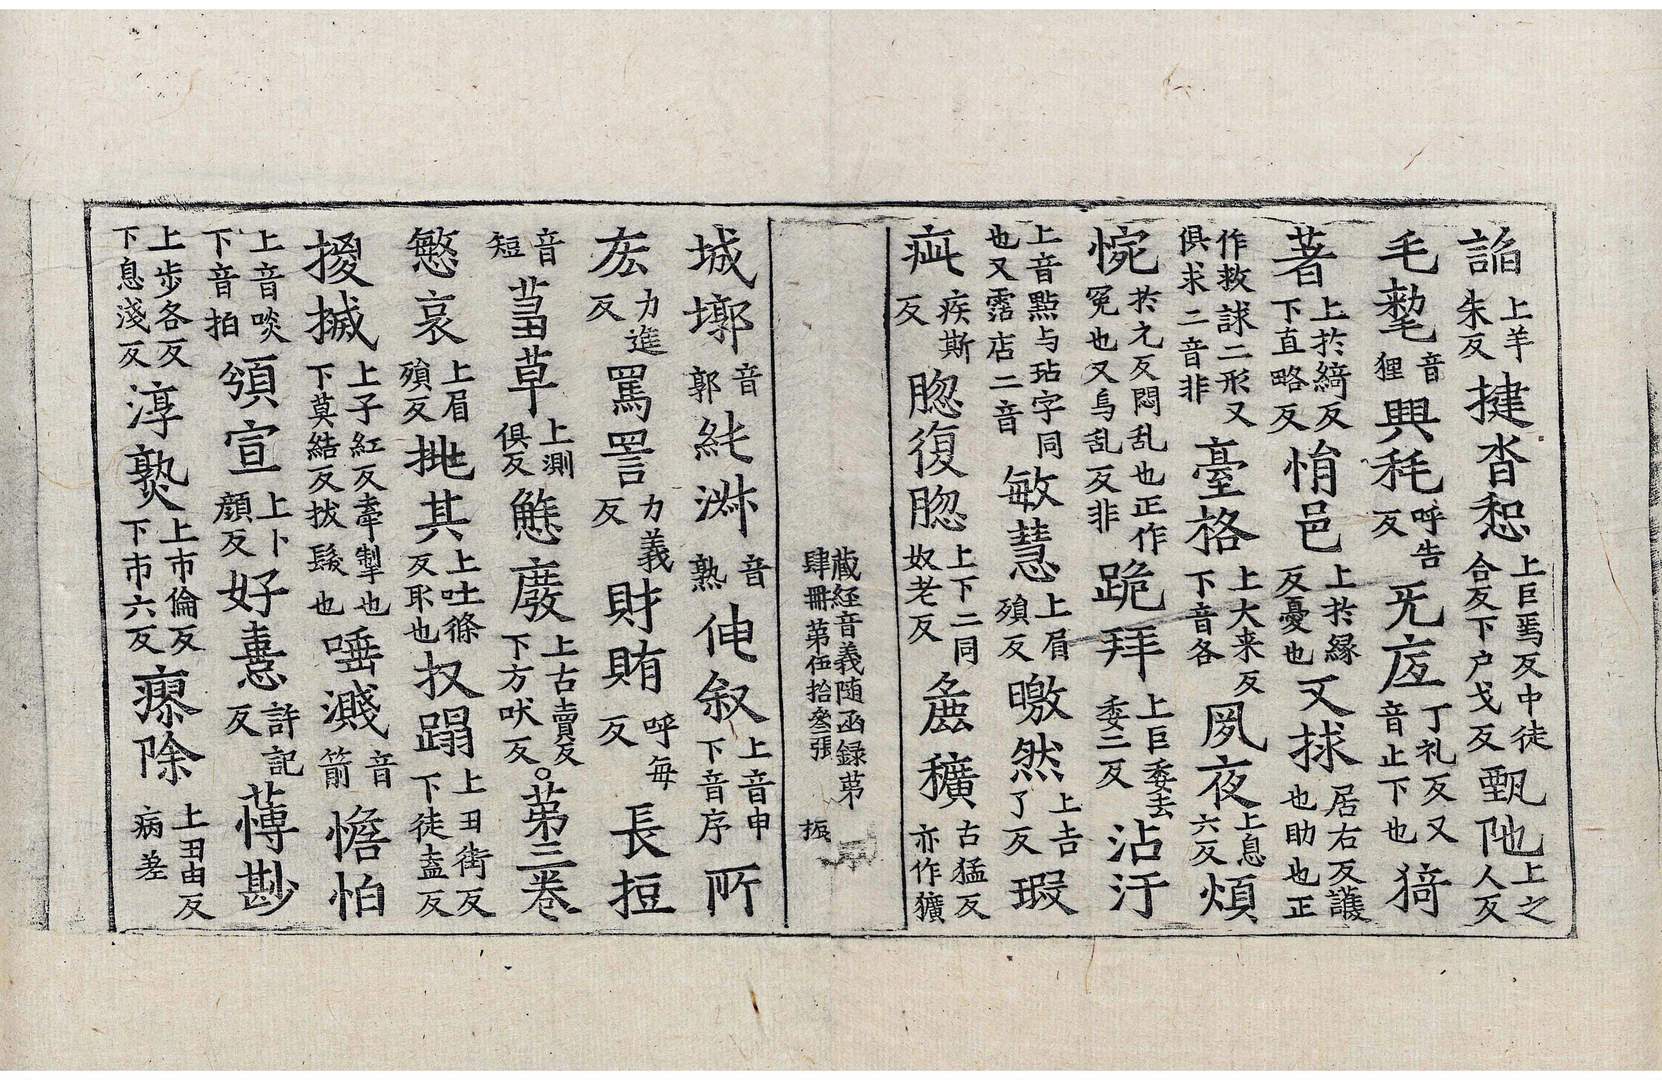 諂上羊朱反揵沓惒上巨焉反中徒合反下户戈反甄阤上之人反
毛㲠音狸興秏呼告反旡㡳丁礼反又音止下也猗
著上於綺反下直略反悁邑上於縁反憂也又捄居右反護也助也正
作救䛮二形又俱求二音非臺格上大来反下音各夙夜上息六反煩
惋於元反悶乱也正作冤也又烏乱反非跪拜上巨委去委二反沾汙
上音點与玷字同也又霑店二音敏慧上眉殞反曒然上吉了反瑕
疵疾斯反𦠆復𦠆上下二同奴老反麁穬古猛反亦作獷
藏経音義随函録苐肆冊苐伍拾叄張 振
城墎音郭純淋音熟伸叙上音申下音序所
㕆力進反罵詈力義反財賄呼每反長𢭏
音短萹草上測俱反觟廢上古賣反下方吠反○苐三卷
慜哀上眉殞反挑其上吐條反取也扠蹋上丑街反下徒盍反
㨑搣上子紅反牽掣也下莫結反拔髮也唾濺音箭憺怕
上音啖下音拍頒宣上卜顔反好憙許記反䔽尠
上步各反下息淺反淳熟上市倫反下市六反瘳除上丑由反病差